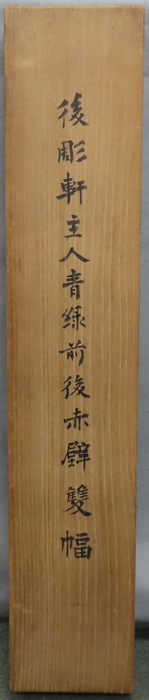 後彫軒主人青緑前後赤壁雙幅